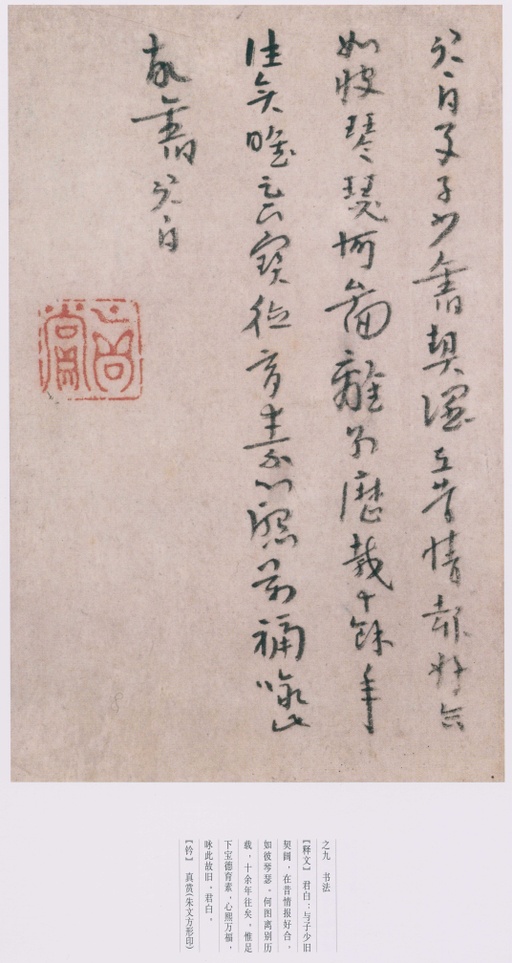 君白与子少舊契闊在昔情報好合
如彼琴瑟何啚離别歷載十餘年
往矣唯足下寶德育素心熙万福詠此
故舊君白
真賞
之九　书法
【释文】　君白：与子少旧
契阔，在昔情报好合，
如彼琴瑟。何图离别历
载，十余年往矣。惟足
下宝德育素，心熙万福，
咏此故旧。君白。
【钤】　真赏(朱文方形印)